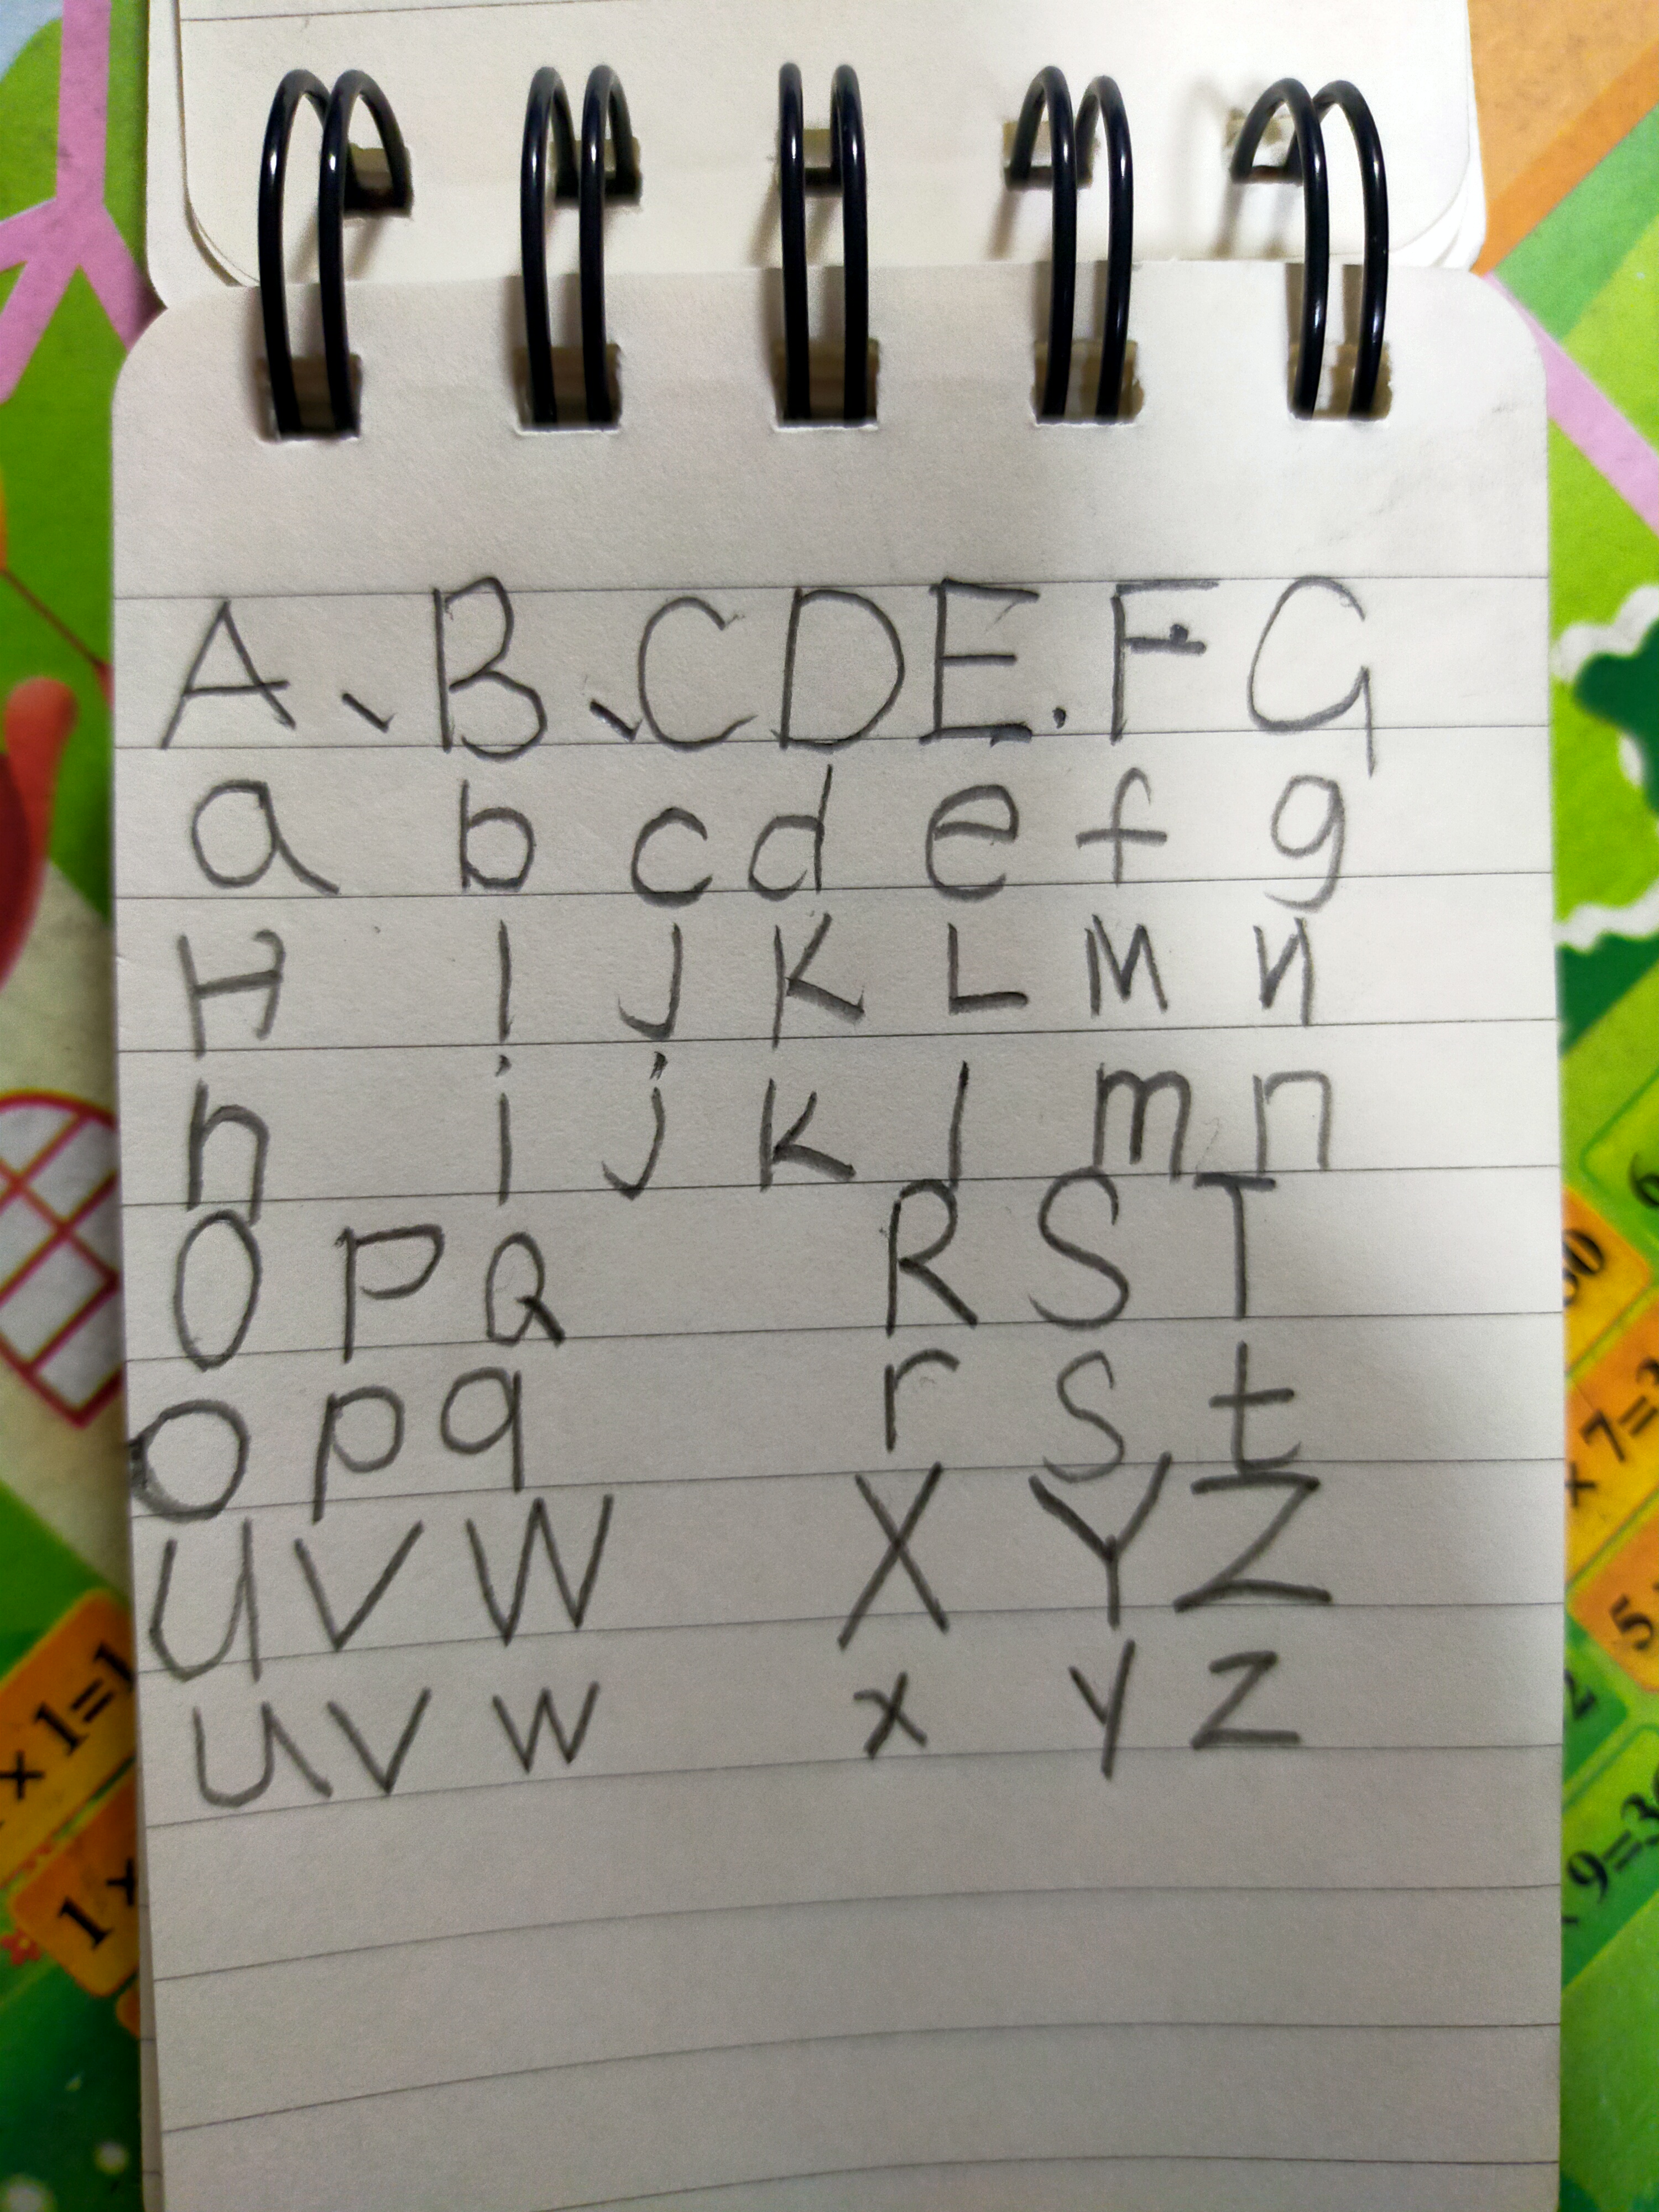 A、B、C D E. F G
a b c d e f g
H I J K L M N
h i j k l m n
O P Q R S T
o p q r s t
U V W X Y Z
u v w x y z
x 1=1
1 x
x 7=3
5
9=3